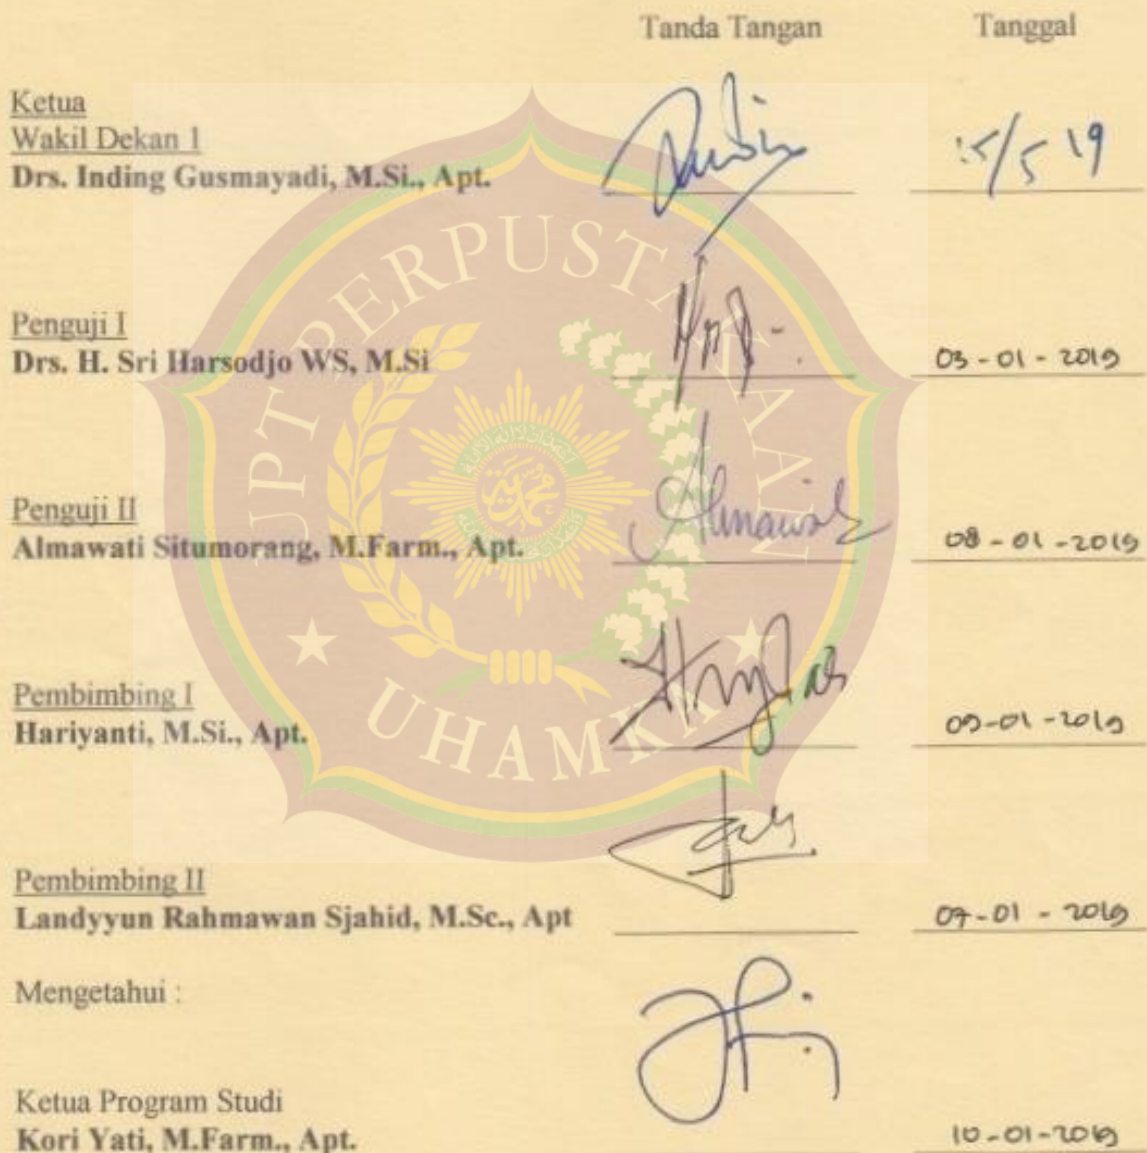 Tanda Tangan Tanggal
Ketua
Wakil Dekan 1
Drs. Inding Gusmayadi, M.Si., Apt.
/5 19
Penguji I
Drs. H. Sri Harsodjo WS, M.Si 03-01-2019
Penguji II
Almawati Situmorang, M.Farm., Apt. 08-01-2019
Pembimbing I
Hariyanti, M.Si., Apt. 09-01-2019
Pembimbing II
Landyyun Rahmawan Sjahid, M.Sc., Apt 07-01-2019
Mengetahui :
Ketua Program Studi
Kori Yati, M.Farm., Apt. 10-01-2019
UPT PERPUSTAKAAN
UHAMKA